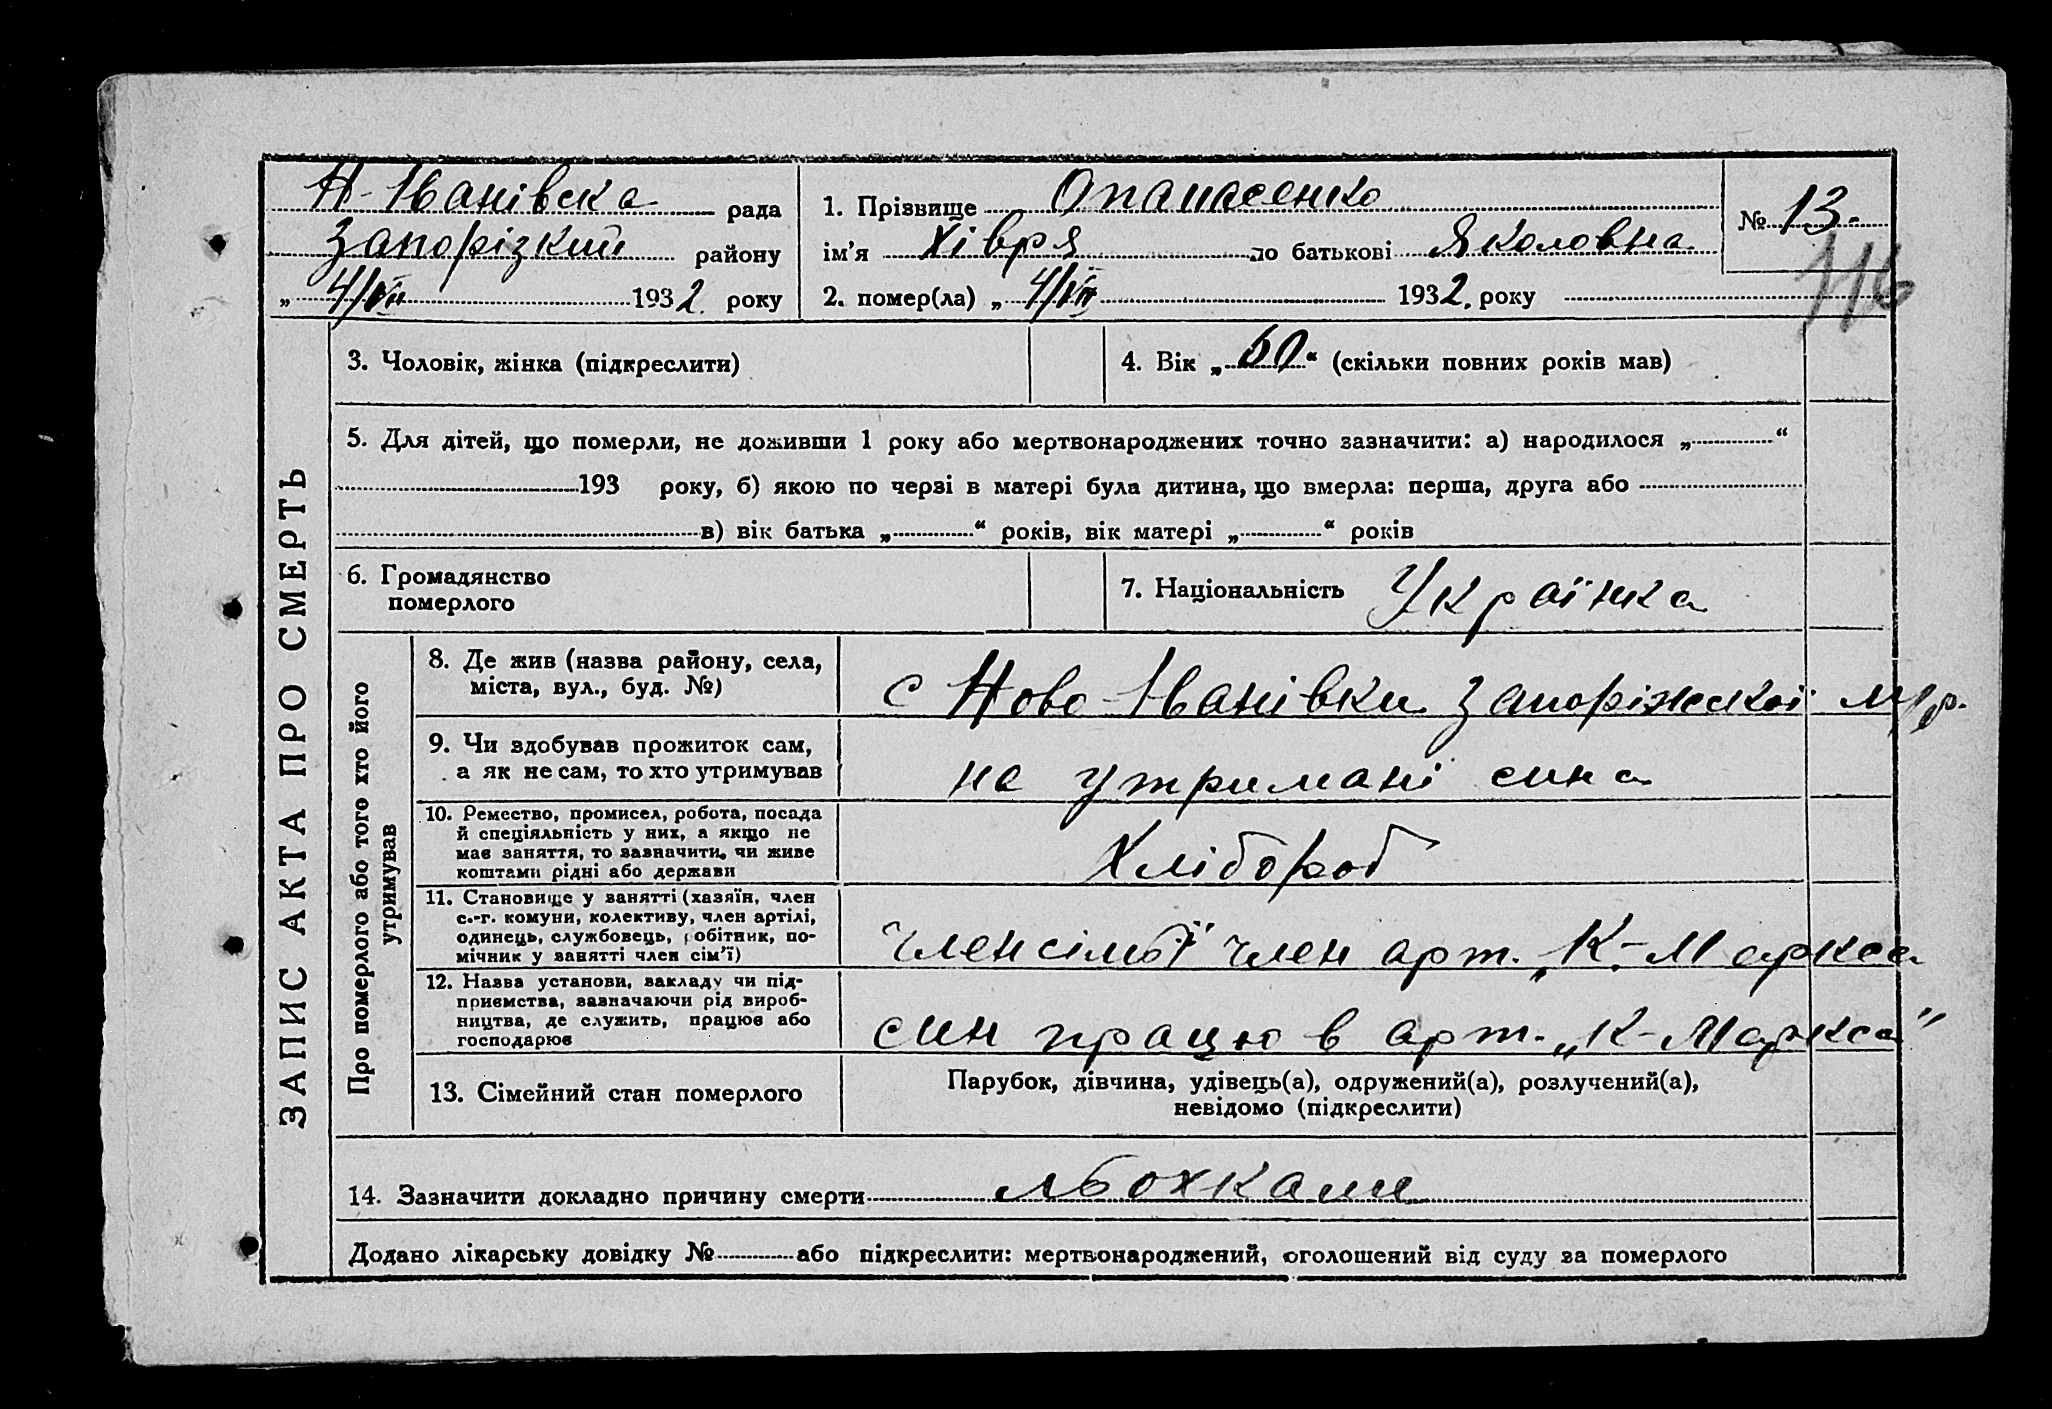 Н-Іванівска рада
Запорізкий району
„ 4/VII 1932 року
1. Прізвище Опанасенко
ім'я Хівря по батькові Яколовна
2. помер(ла) „ 4/VII 1932. року
№ 13.
116
ЗАПИС АКТА ПРО СМЕРТЬ
3. Чоловік, жінка (підкреслити)
4. Вік „ 60 “ (скільки повних років мав)
5. Для дітей, що померли, не доживши 1 року або мертвонароджених точно зазначити: а) народилося „ “
193 року, б) якою по черзі в матері була дитина, що вмерла: перша, друга або
в) вік батька „ “ років, вік матері „ “ років
6. Громадянство
померлого
7. Національність Українка
Про померлого або того хто його
утримував
8. Де жив (назва району, села,
міста, вул., буд. №)
с Ново-Іванівки Запоріжскої м/р.
9. Чи здобував прожиток сам,
а як не сам, то хто утримував
на утримані сина
10. Ремество, промисел, робота, посада
й спеціяльність у них, а якщо не
мав заняття, то зазначити, чи живе
коштами рідні або держави
Хлібороб
11. Становище у занятті (хазяїн, член
с.-г. комуни, колективу, член артілі,
одинець, службовець, робітник, по-
мічник у занятті член сім'ї)
член сімьї член арт. „К-Маркса
12. Назва установи, закладу чи під-
приємства, зазначаючи рід вироб-
ництва, де служить, працює або
господарює
син працю в арт. „К-Маркса”
13. Сімейний стан померлого
Парубок, дівчина, удівець(а), одружений(а), розлучений(а),
невідомо (підкреслити)
14. Зазначити докладно причину смерти льохками
Додано лікарську довідку № або підкреслити: мертвонароджений, оголошений від суду за померлого